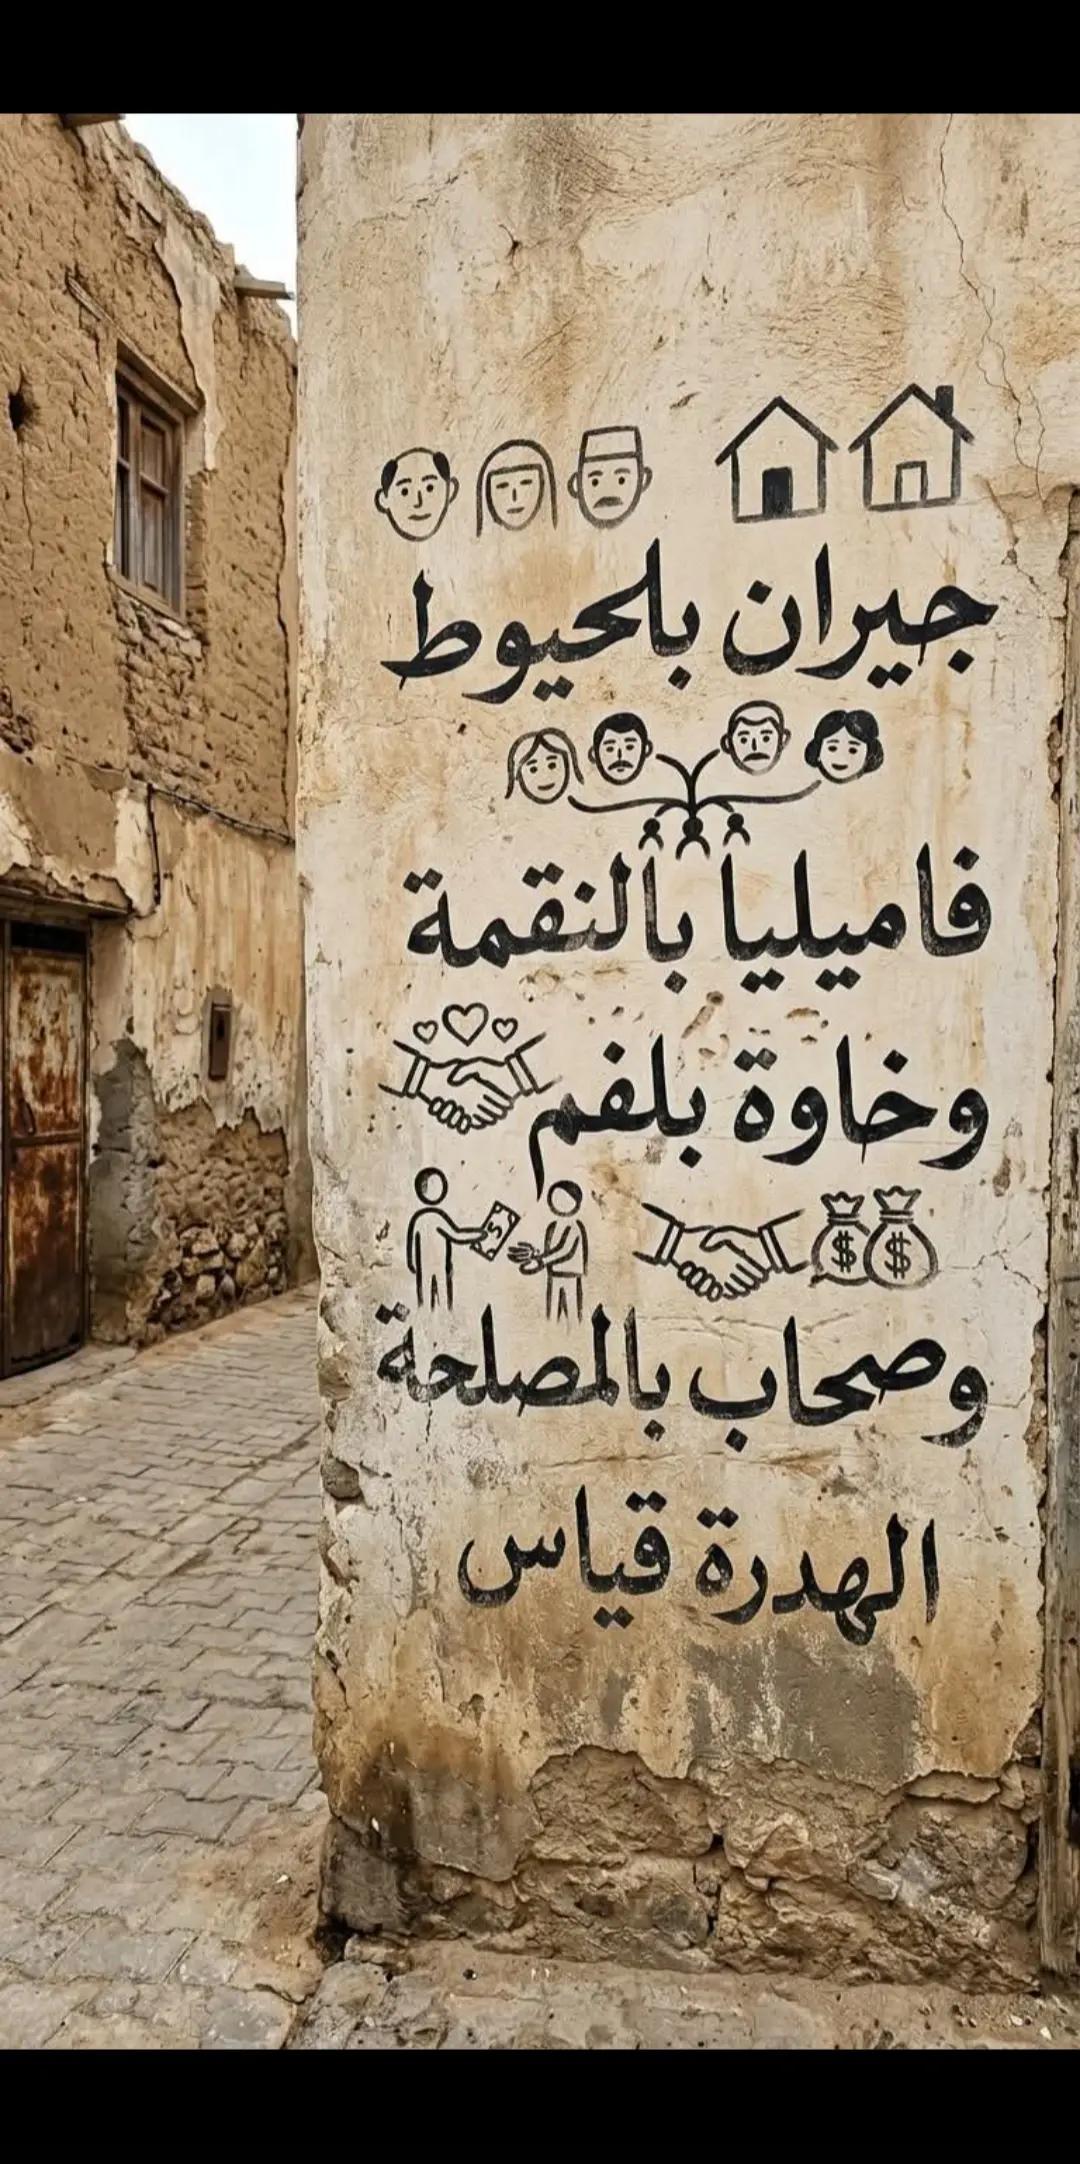 جيران بلحيوط
فاميليا بالنقمة
وخاوة بلفم
وصحاب بالمصلحة
الهدرة قياس